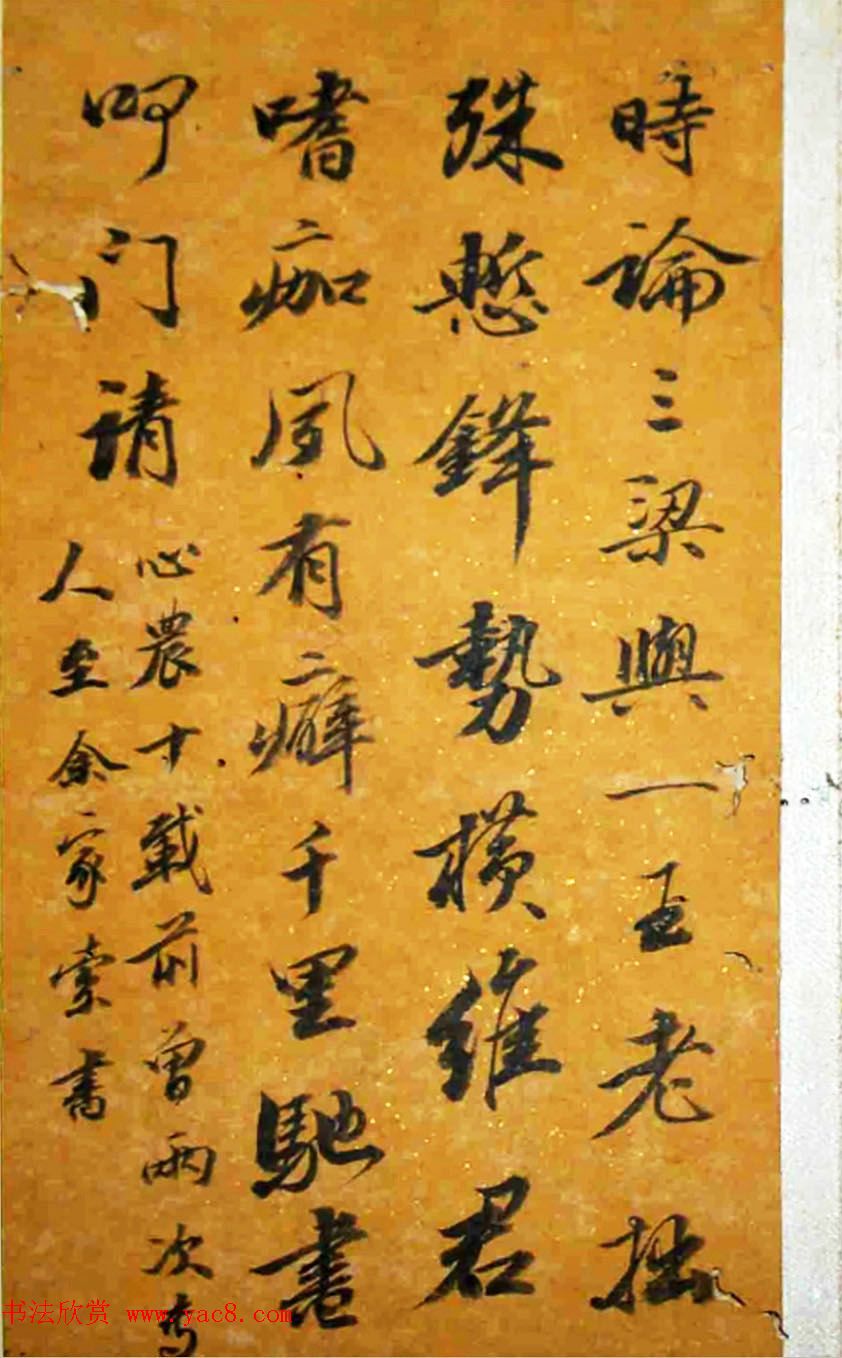 時論三梁與一王老拙
殊慙鋒勢橫維君
嗜痂夙有癖千里馳書
叩门请
心農十載前曾兩次专
人至余家索書
书法欣赏 www.yac8.com